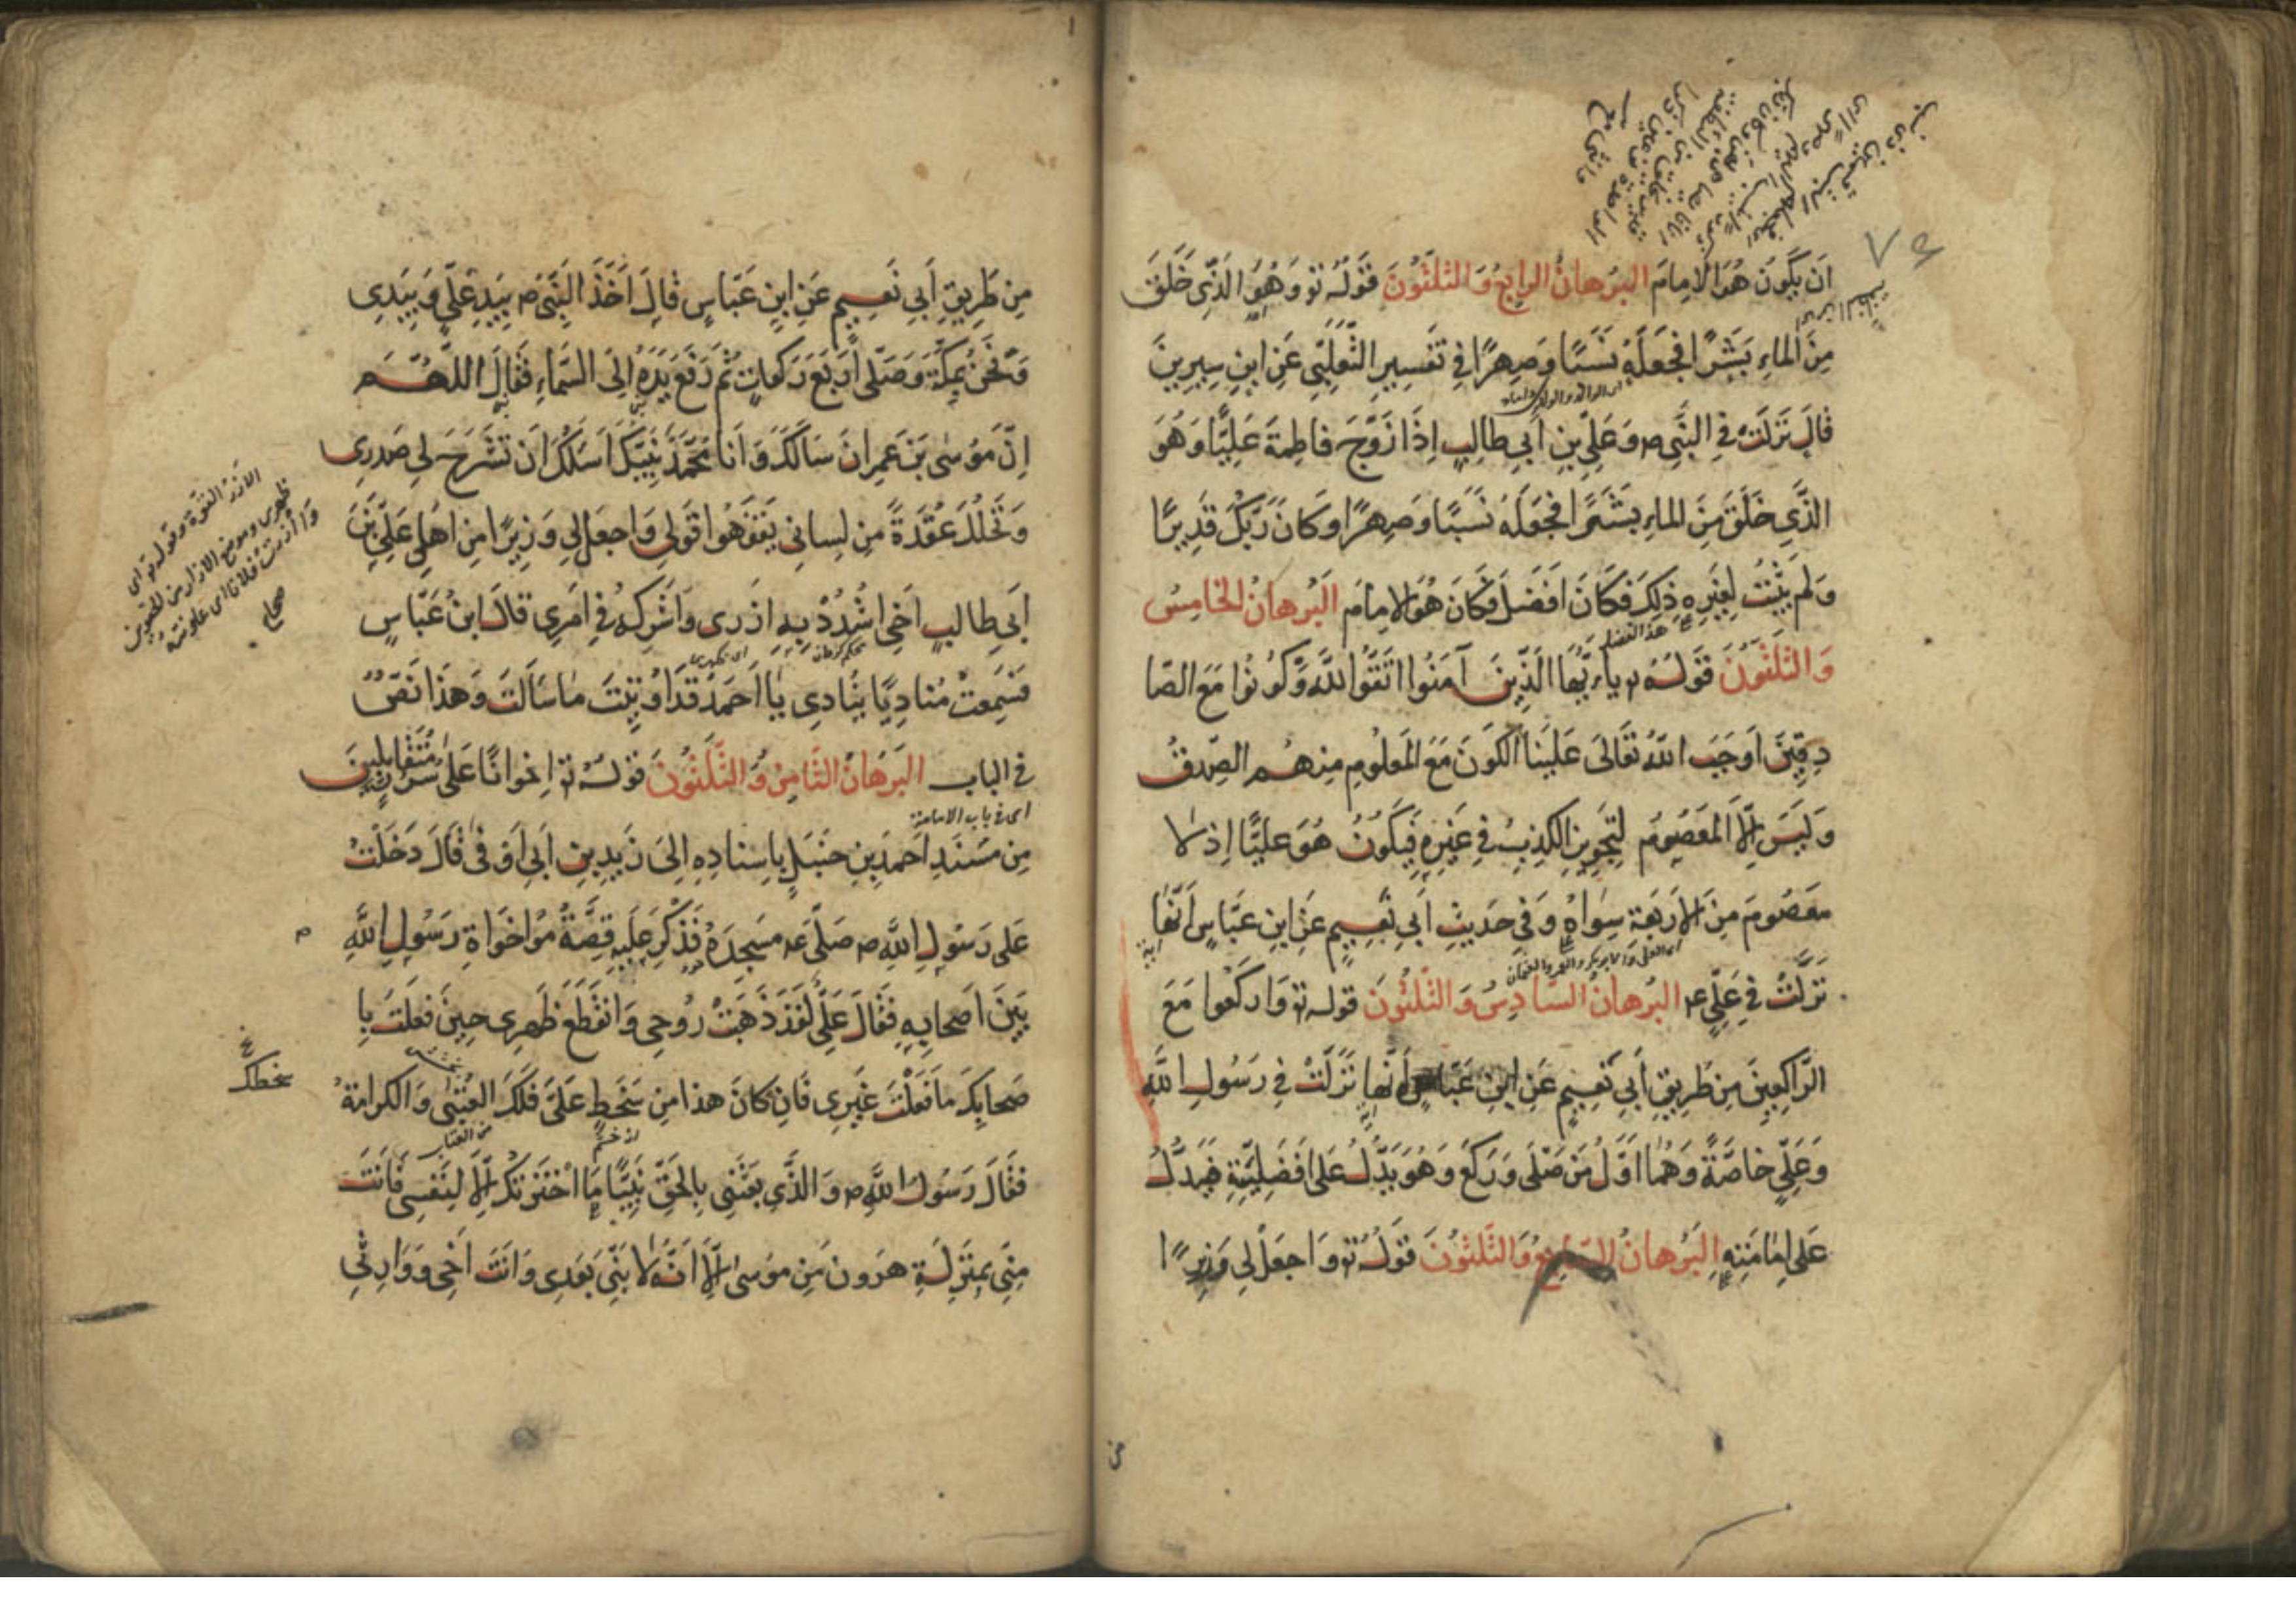 ان يكون هو الامام البرهان الرابع والثلثون قوله تو وهو الذي خلق
من الماء بشرا فجعله نسبا وصهرا في تفسير الثعلبي عن ابن سيرين
قال نزلت في النبي ص وعلي بن ابي طالب اذا زوج فاطمة عليا وهو
الذي خلق من الماء بشرا فجعله نسبا وصهرا وكان ربك قديرا
ولم يثبت لغيره ذلك فكان افضل فكان هو الامام البرهان الخامس
والثلثون قوله تو ياءيها الذين آمنوا اتقوا الله وكونوا مع الصا
دقين اوجب الله تعالى علينا الكون مع المعلوم منهم الصدق
وليس الا المعصوم لتجويز الكذب في غيره فيكون هو عليا اذ لا
معصوم من الاربعة سواه وفي حديث ابي نعيم عن ابن عباس انها
نزلت في علي ع البرهان السادس والثلثون قوله تو واركعوا مع
الراكعين من طريق ابي نعيم عن ابن عباس انها نزلت في رسول الله
وعلي خاصة وهما اول من صلى وركع وهو يدل على افضليته فيدل
على امامته البرهان السابع والثلثون قوله تو واجعل لي وزيرا
من
من طريق ابي نعيم عن ابن عباس قال اخذ النبي ص بيد علي وبيدي
ونحن بمكة وصلى اربع ركعات ثم رفع يده الى السماء فقال اللهم
ان موسى بن عمران سالك وانا محمد نبيك اسلك ان تشرح لي صدري
وتحلل عقدة من لساني يفقهوا قولي واجعل لي وزيرا من اهلي علي بن
ابي طالب اخي اشدد به ازري واشركه في امري قال ابن عباس
فسمعت مناديا ينادي يا احمد قد اوتيت ما سالت وهذا نص
في الباب البرهان الثامن والثلثون قوله تو اخوانا على سرر متقابلين
اى في باب الامامة
من مسند احمد بن حنبل باسناده الى زيد بن ابي اوفى قال دخلت
على رسول الله ص صلى ع مسجده فذكر عليه قصة مواخواة رسول الله
بين اصحابه فقال علي لقد ذهبت روحي وانقطع ظهري حين فعلت با
صحابك ما فعلت غيري فان كان هذا من سخط علي فلك العتبى والكرامة
سخطك
فقال رسول الله ص والذي بعثني بالحق نبيا ما اخترتك الا لنفسي فانت
مني بمنزلة هرون من موسى الا انه لا نبي بعدي وانت اخي ووارثي
الازر القوة وقوله تو اى
ظهرى وموضع الازار من الحقوين
وآزرت فلانا اى عاونته
صحاح